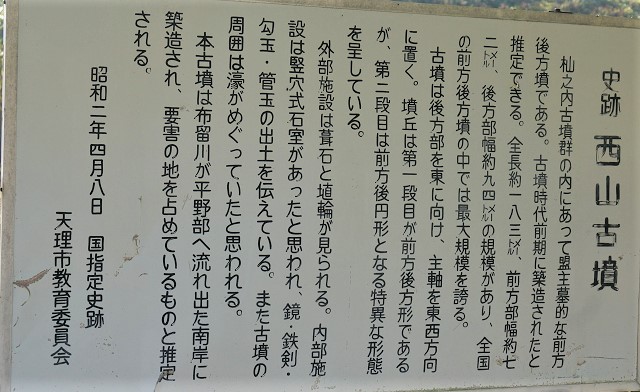 史跡 西山古墳
杣之内古墳群の内にあって盟主墓的な前方
後方墳である。古墳時代前期に築造されたと
推定できる。全長約一八三㍍、前方部幅約七
二㍍、後方部幅約九四㍍の規模があり、全国
の前方後方墳の中では最大規模を誇る。
古墳は後方部を東に向け、主軸を東西方向
に置く。墳丘は第一段目が前方後方形である
が、第二段目は前方後円形となる特異な形態
を呈している。
外部施設は葺石と埴輪が見られる。内部施
設は竪穴式石室があったと思われ、鏡・鉄剣・
勾玉・管玉の出土を伝えている。また古墳の
周囲は濠がめぐっていたと思われる。
本古墳は布留川が平野部へ流れ出た南岸に
築造され、要害の地を占めているものと推定
される。
昭和二年四月八日 国指定史跡
天理市教育委員会